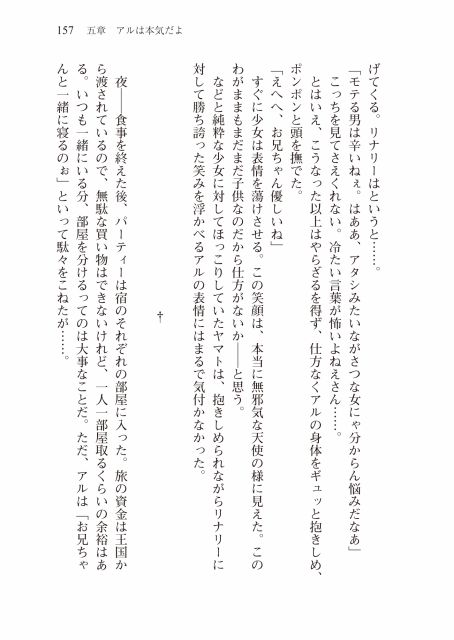 157　五章　アルは本気だよ
げてくる。リナリーはというと……。
「モテる男は辛いねぇ。はああ、アタシみたいながさつな女にゃ分からん悩みだなあ」
こっちを見てさえくれない。冷たい言葉が怖いよねえさん……。
とはいえ、こうなった以上はやらざるを得ず、仕方なくアルの身体をギュッと抱きしめ、
ポンポンと頭を撫でた。
「えへへ、お兄ちゃん優しいね」
すぐに少女は表情を蕩けさせる。この笑顔は、本当に無邪気な天使の様に見えた。この
わがままもまだまだ子供なのだから仕方がないか――と思う。
などと純粋な少女に対してほっこりしていたヤマトは、抱きしめられながらリナリーに
対して勝ち誇った笑みを浮かべるアルの表情にはまるで気付かなかった。
†
夜――食事を終えた後、パーティーは宿のそれぞれの部屋に入った。旅の資金は王国か
ら渡されているので、無駄な買い物はできないけれど、一人一部屋取るくらいの余裕はあ
る。いつも一緒にいる分、部屋を分けるってのは大事なことだ。ただ、アルは「お兄ちゃ
んと一緒に寝るのぉ」といって駄々をこねたが……。